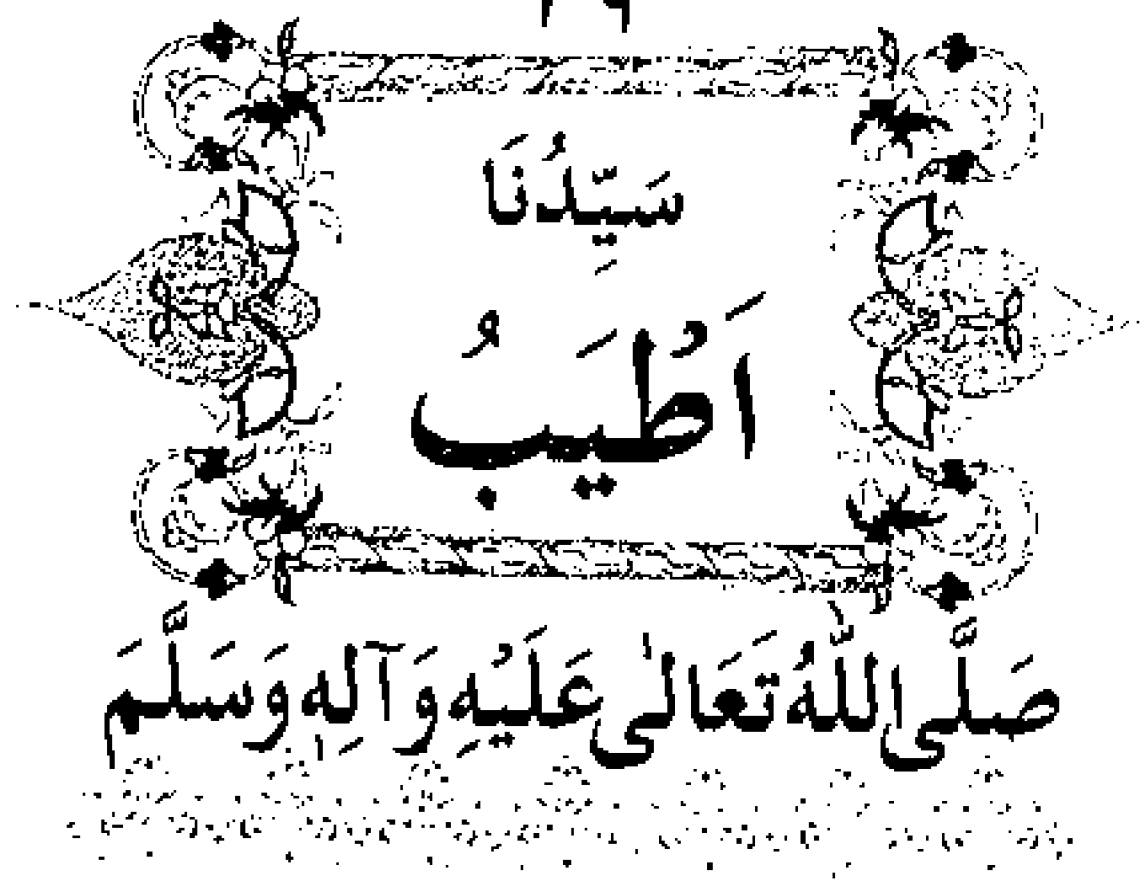 سَيِّدُنَا
اَطْيَبُ
صَلَّى اللّٰهُ تَعَالٰى عَلَيْهِ وَآلِهٖ وَسَلَّمَ